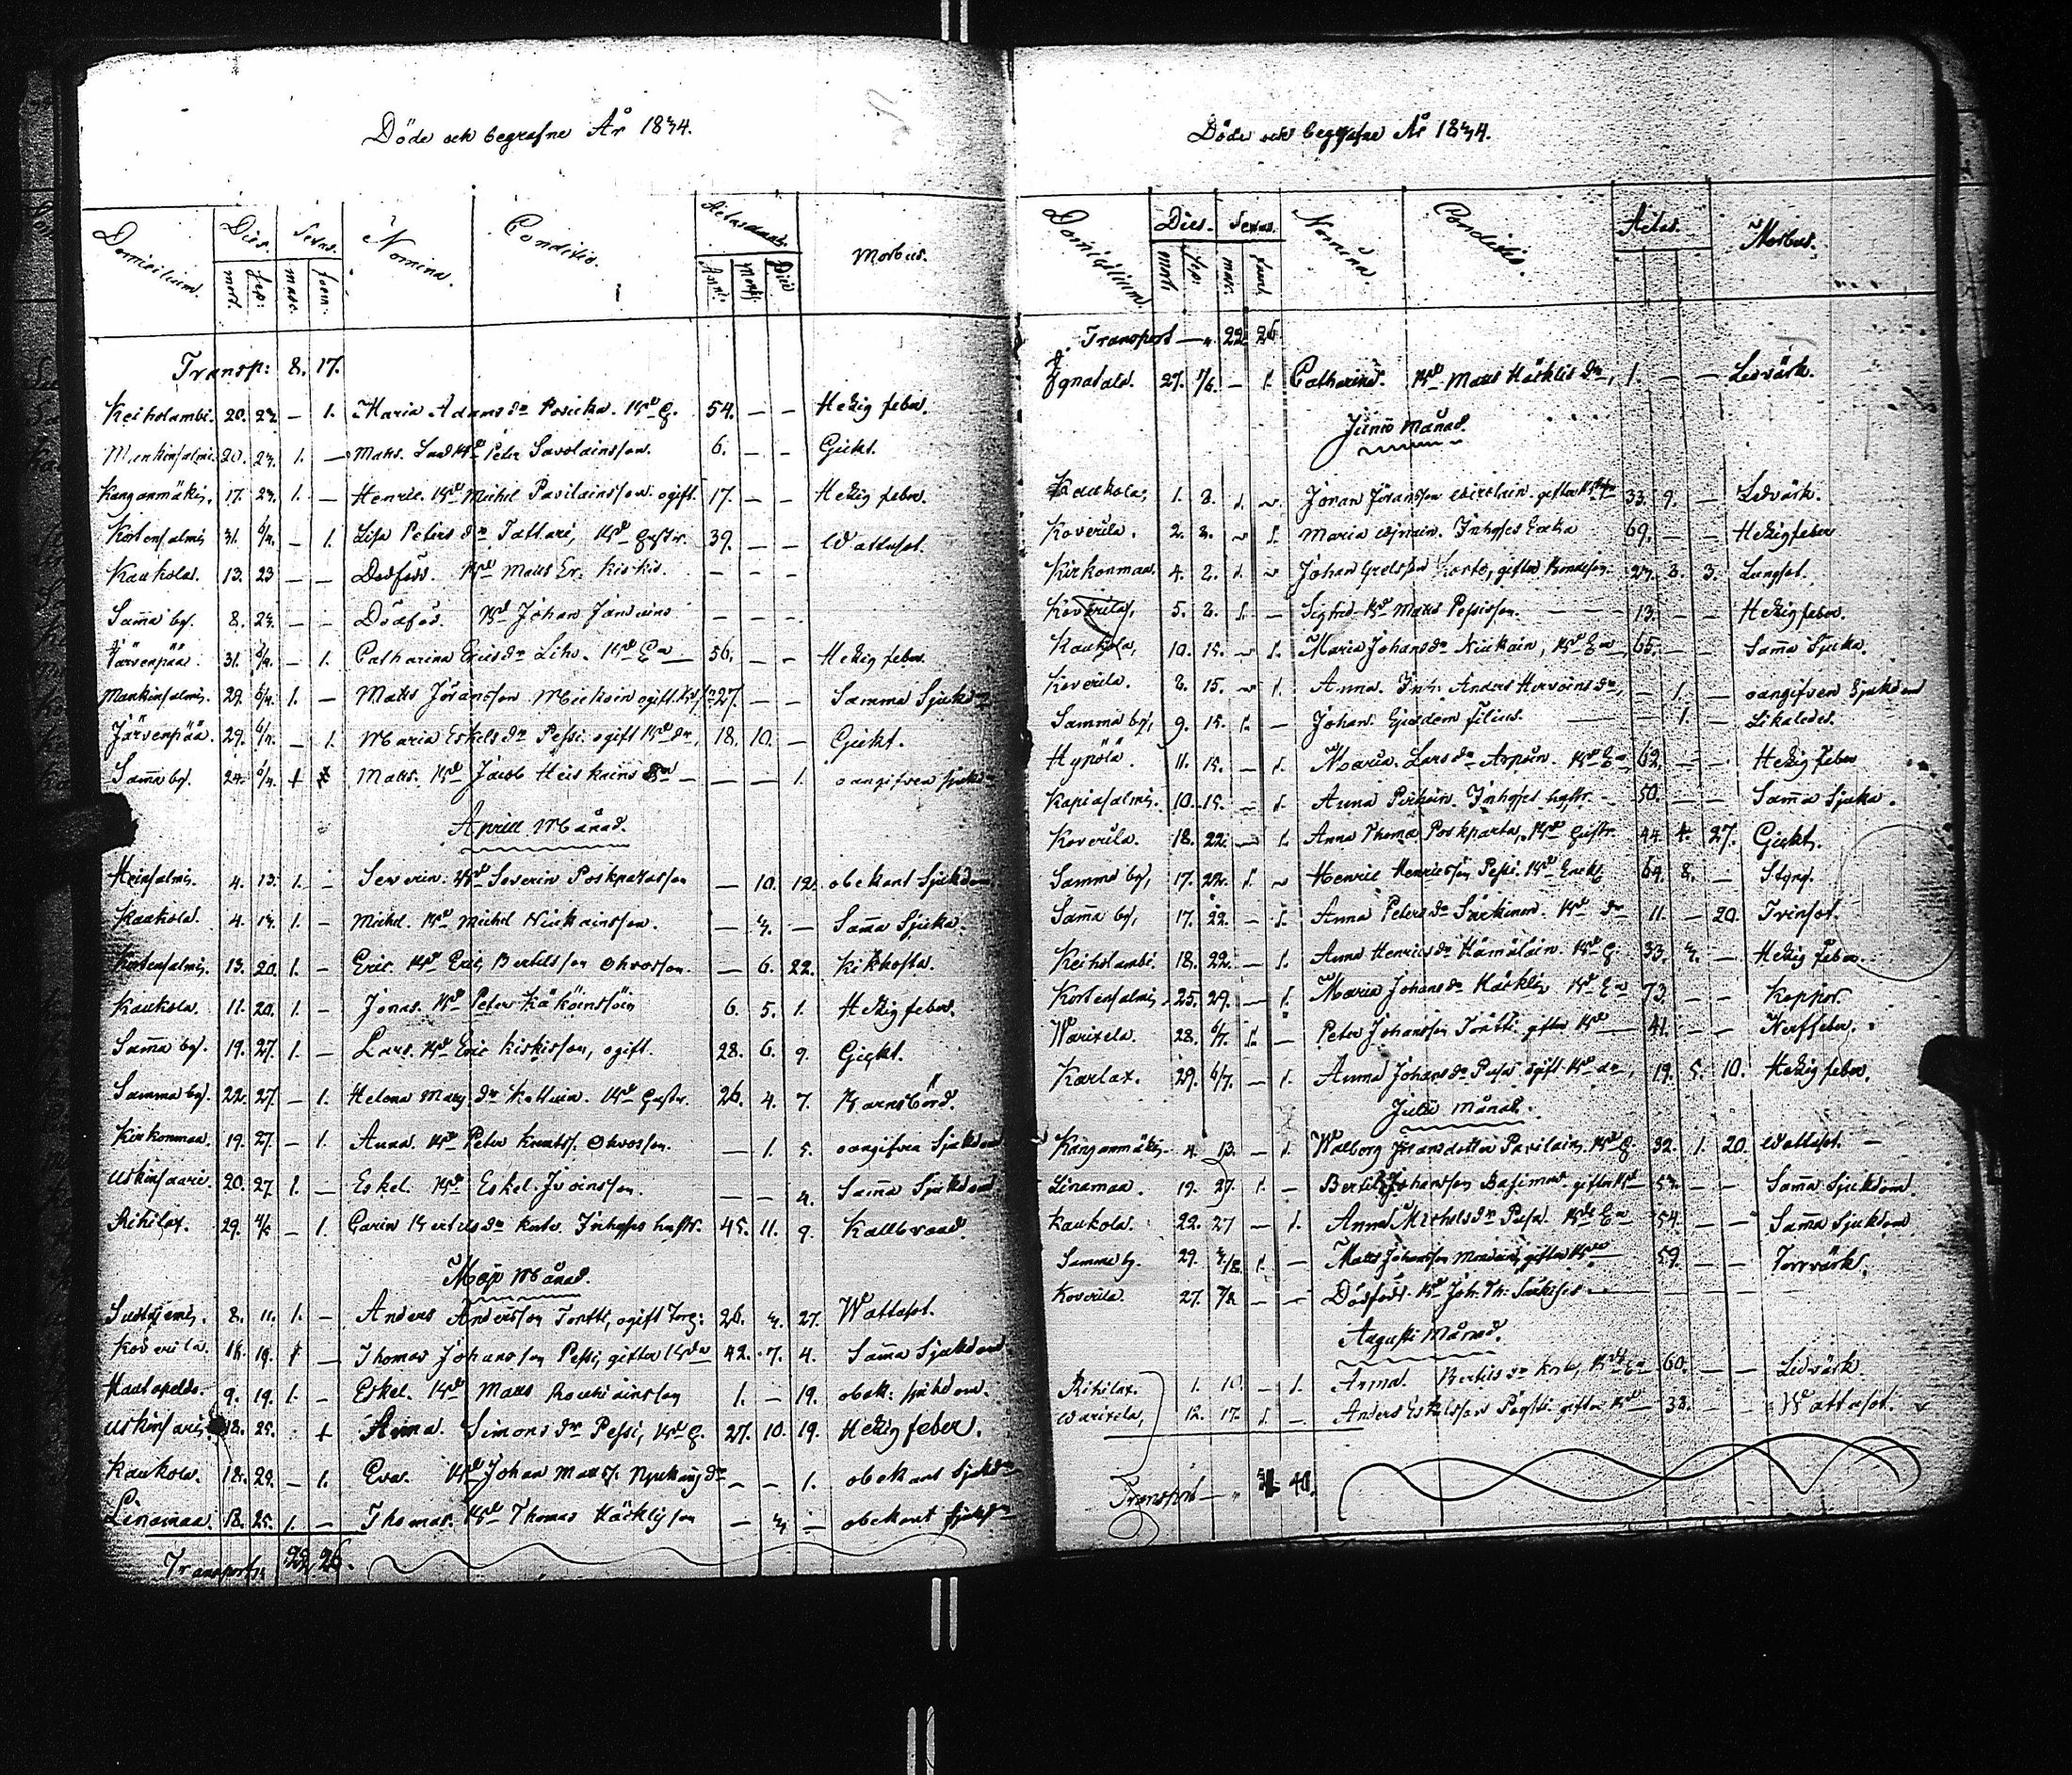 Döde och begrafne År 1834.
Domicilium. Dies. Sexus. Nomina. Conditio. Morbus.
mort. sep: masc. foem. Anni. Mens. Dies
Transp: 8. 17.
Keiholambi. 20. 23. — 1. Maria Adams dr Posicka. Bd E. 54. — — Hetzig feber.
Monkinsalmi. 20. 23. 1. — Matts. Peter Savolainsson. 6. — — Gickt.
Kanganmäki. 17. 23. 1. — Henric. Bd Michel Pavilainsson. ogift. 17. — — Hetzig feber.
Kortensalmi. 31. 6/4. — 1. Lisa Peters dr Tattari, Bd hustr. 39. — — Wattusot.
Kaukola. 13. 23 — — Dödfödd. Bd Matts Er. Kiskis. — — —
Samma by. 8. 23. — — Dödfös. Bd Johan — — —
Järvenpää. 31. 6/4. — 1. Catharina Erics dr Liho. Bd Ea 56. — — Hetzig feber.
Monkinsalmi. 29. 6/4. 1. — Matts Jöransson ogift 27. — — Samma Sjukd
Järvenpää. 29. 6/4. — 1. Maria Eskels dr Pessi. ogift Bd dr. 18. 10. — Gickt.
Samma by. 24. 6/4. Matts. Bd Jacob Heiskains — — 1. oangifven sjukd
April Månad.
Heinsalmi. 4. 13. 1. — Severin. Bd Severin Poskparasson — 10. 12. obekant Sjukdom.
Kaukola. 4. 13. 1. — Michel. Bd Michel Niukainsson. — 3. — Samma Sjuka.
Kortensalmi. 13. 20. 1. — Eric. Bd Eric Bertilsson Ohvosson. — 6. 22. Kikhosta.
Kaukola. 11. 20. 1. — Jonas. Bd Peter Käköinssön 6. 5. 1. Hetzig feber.
Samma by. 19. 27. 1. — Lars. Bd Eric Kiskisson, ogift. 28. 6. 9. Gickt.
Samma by. 22. 27. — 1. Helena Matts. dr Kattiain. Bd hustr. 26. 4. 7. Barnsbörd.
Kirkonmaa. 19. 27. — 1. Anna. Bd Peter Knuts. Ohvosson. — 1. 5. oangifven Sjukdom
Uskinsaari. 20. 27. 1. — Eskel. Bd Eskel Ivoinsson. — — 4. Samma Sjukdom
Rihilax. 29. — 1. Carin Bertils dr Korte. Inhyses hustr. 45. 11. 9. Kallbrand.
Maji Månad.
8. 11. 1. — Anders Andersson Torttt, ogift Torp: 26. 3. 27. Wattusot.
Koverila. 16. 19. 1 — Thomas Johansson Pessi, gifter Bonde 42. 7. 4. Samma Sjukdom
Hautapelda. 9. 19. 1. — Eskel. Bd Matts Rouhiainsson 1. — 19. obek: sjukdom.
Uskinsaari. 18. 25. — 1 Anna. Simons dr Pessi, Bd E. 27. 10. 19. Hetzig feber.
Kaukola. 18. 29. — 1. Eva. Bd Johan Matts. dr — — 1. obekant Sjukdom
Linamaa. 18. 25. 1. — Thomas. Bd Thomas Häcklisson — 3. — obekant Sjukd
Transport: 22. 26.
Döde och begrafne År 1834.
Domicilium. Dies. Sexus. Nomina. Conditio. Aetas. Morbus.
mort. sep: masc. foem.
Transport — 22. 26
27. 1/6. — 1. Catharina. Bd Matts Häcklis dr, 1. — — Ledvärk.
Junii Månad.
Kaukola, 1. 2. 1. — Jöran Jöransson gifter 33. 9. — Ledvärk.
Koverila. 2. 2. — 1. Maria Inhyses Enka 69. — — Hetzigfeber
Kirkonmaa. 4. 2. 1. — Johan Grelsson Korte, gifter Bondeson. 27. 3. 3. Lungsot.
Koverila. 5. 2. 1. — Sigfrid. Bd Matts Pessisson. 13. — — Hetzigfeber.
Kaukola, 10. 15. — 1. Maria Johans dr Niukain, Bd Ea 65. — — Samma Sjuka.
Koverila. 8. 15. — 1. Anna. Inh: Anders Hervoins dr, — 1. — oangifven Sjukdom
Samma by, 9. 15. 1. — Johan. Ejusdem filius. — 1. — Likaledes.
Hypölä. 11. 15. — 1. Maria. Lars dr Arpiain. Bd Ea, 62. — — Hetzig Feber
Kapiasalmi. 10. 15. — 1. Anna Pirhoin. Inhyses hustr. 50. — — Samma Sjuka.
Koverila. 18. 22. — 1. Anna Thomæ Poskparta, Bd hustr. 44. 4. 27. Gickt.
Samma by, 17. 22. 1. — Henric Henricsson Pessi. Bd Enkl. 64. 8. — Styng.
Samma by, 17. 22. — 1. Anna Peters dr Särkinen. Bd dr 11. — 20. Tvinsot.
Keiholambi. 18. 22. — 1. Anna Henrics dr Hämäläin. Bd E 33. 3. — Hetzig Feber.
Kortensalmi. 25. 29. — 1. Maria Johans dr Häckli. Bd Ea 73. — — Koppor.
Warixela. 28. 6/7. 1. — Peter Johansson Torttti gifter Bd 41. — — Nerffeber.
Karlax. 29. 6/7. — 1. Anna Johans dr Pusa ogift Bd dr, 19. 5. 10. Hetzig feber.
Julii Månad.
Kanganmäki. 4. 13. — 1. Walborg Jöransdotter Pavilain, Bd E. 32. 1. 20. Wattusot. —
Linamaa. 19. 27. 1. — Bertil Johansson Basimov. gifter Bd 53. — — Samma Sjukdom.
Kaukola. 22. 27 — 1. Anna Michels dr Pusa. Bd Ea 54. — — Samma Sjukdom
Samma by. 29. 3/8. 1. — Matts Johansson gifter Bonde 59. — — Torrvärk.
Koverila. 27. — — Dödfödt. Bd Joh. Th: Särkisos — — —
Augusti Månad.
Rihilax. 1. 10. — 1. Anna. Bertils dr Korte, Bd Ea 60. — — Ledvärk.
Warixela, 12. 17. 1. — Anders Eskelsson gifter Bd 38. — — Wattusot.
Transport — 40.